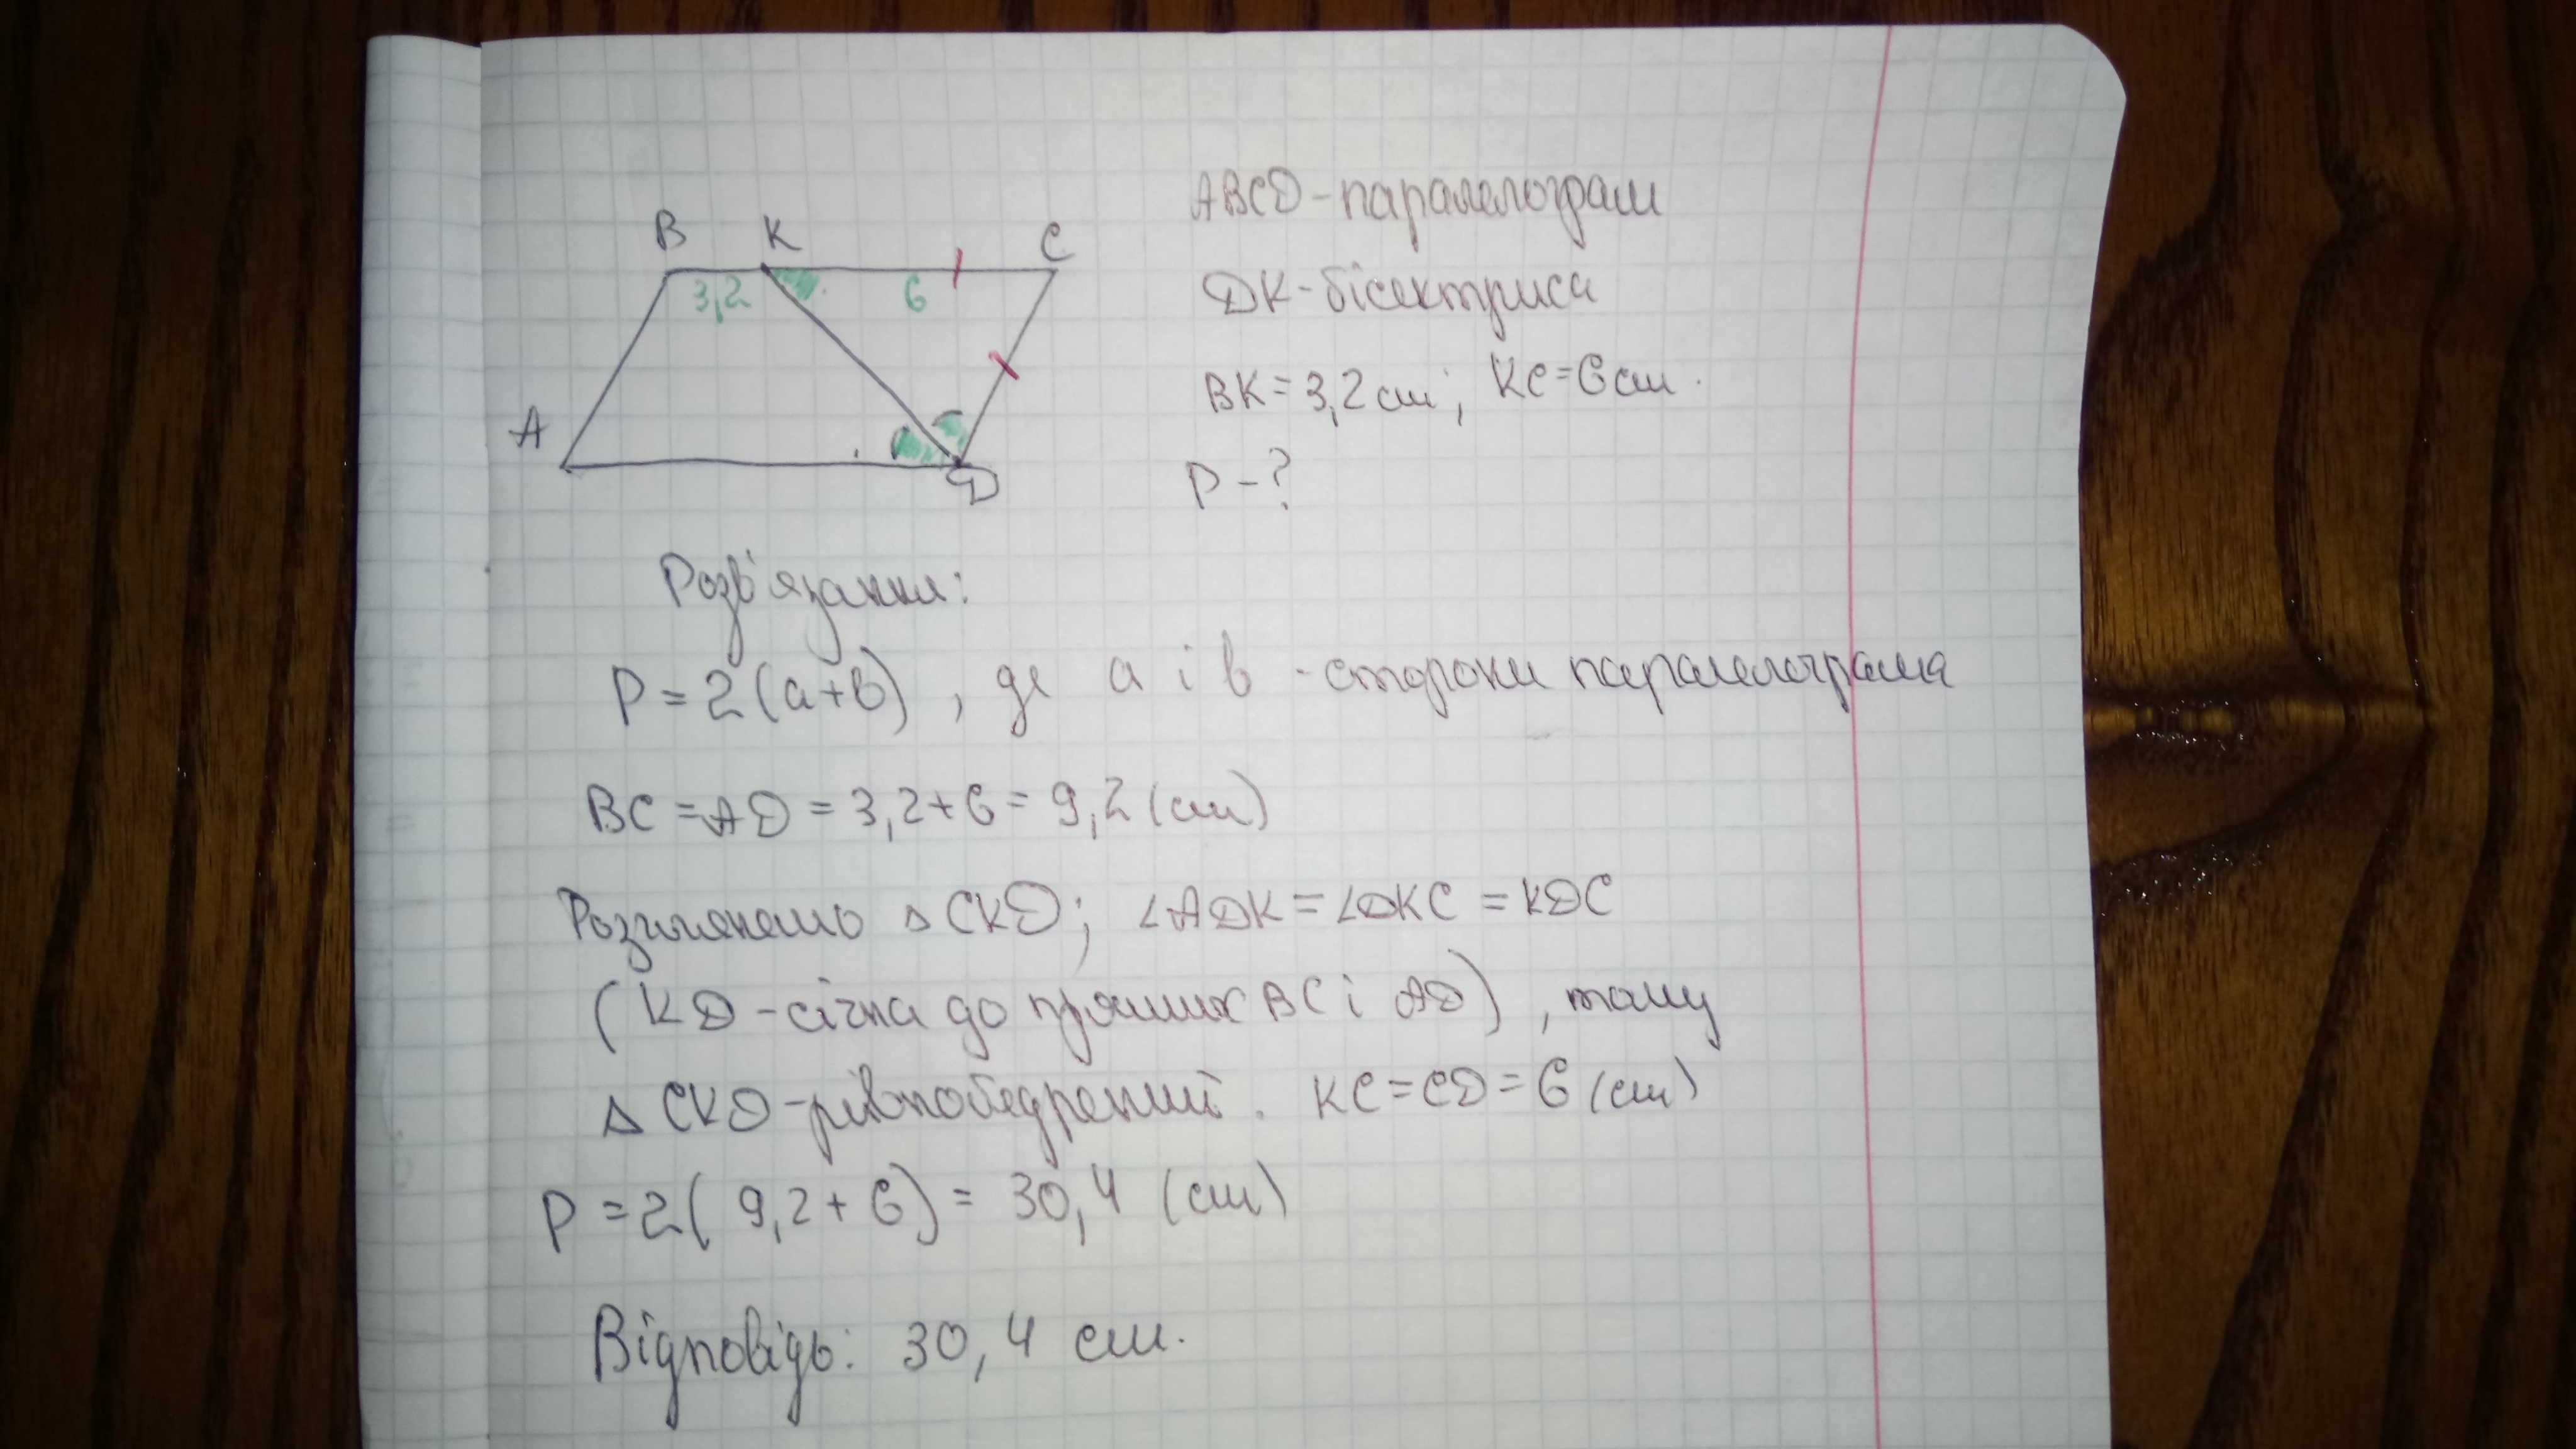 B K C
3,2 6
A
D
ABCD-паралелограм
DK-бісектриса
BK=3,2см; KC=6см.
P-?
Розв'язання:
P=2(a+b), де a і b -сторони паралелограма
BC=AD=3,2+6=9,2(см)
Розглянемо ΔCKD; ∠ADK=∠DKC=KDC
(KD-січна до прямих BC і AD), тому
ΔCKD-рівнобедрений. KC=CD=6(см)
P=2(9,2+6)=30,4 (см)
Відповідь: 30,4 см.